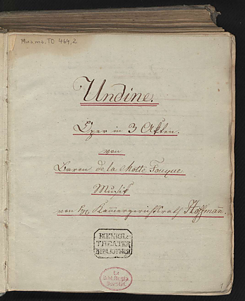 Mus.ms. TO 464,2
Undine.
Oper in 3 Akten.
von
Baron de la Motte Fouque.
Musik
von Hr. Kammergerichtsrath Hoffmann.
KOENIGL.
THEATER
BIBLIOTHEK